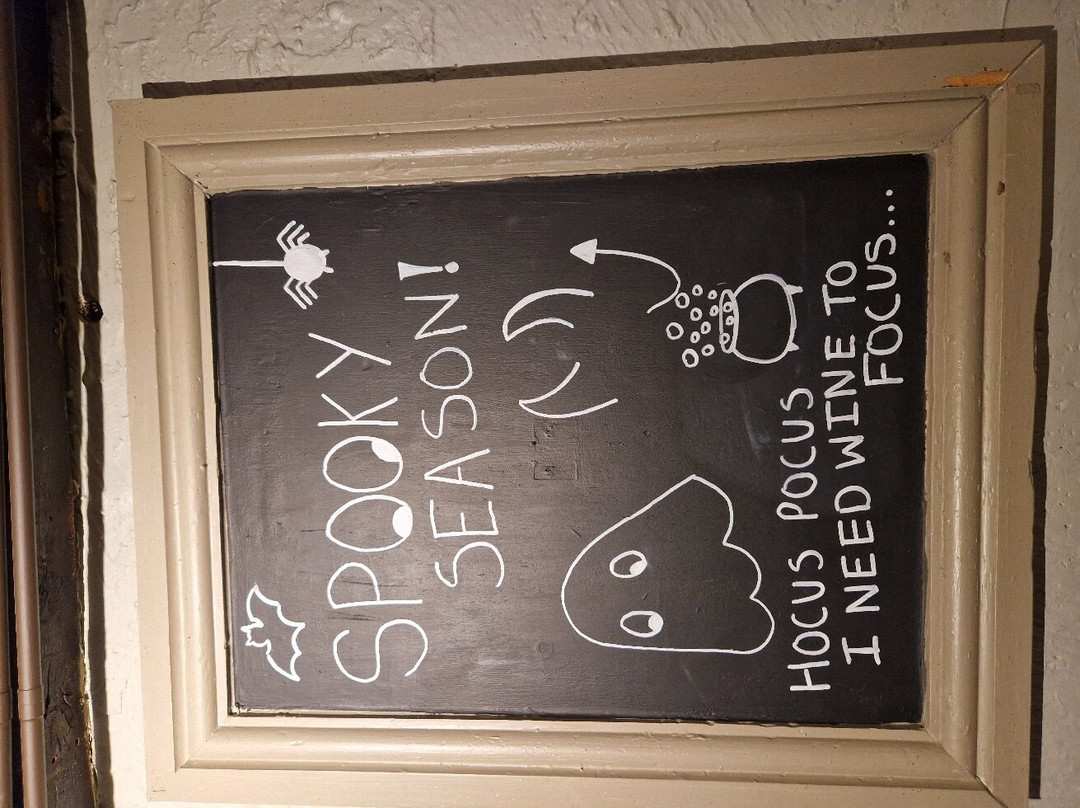 SPOOKY
SEASON!
HOCUS POCUS
I NEED WINE TO
FOCUS...